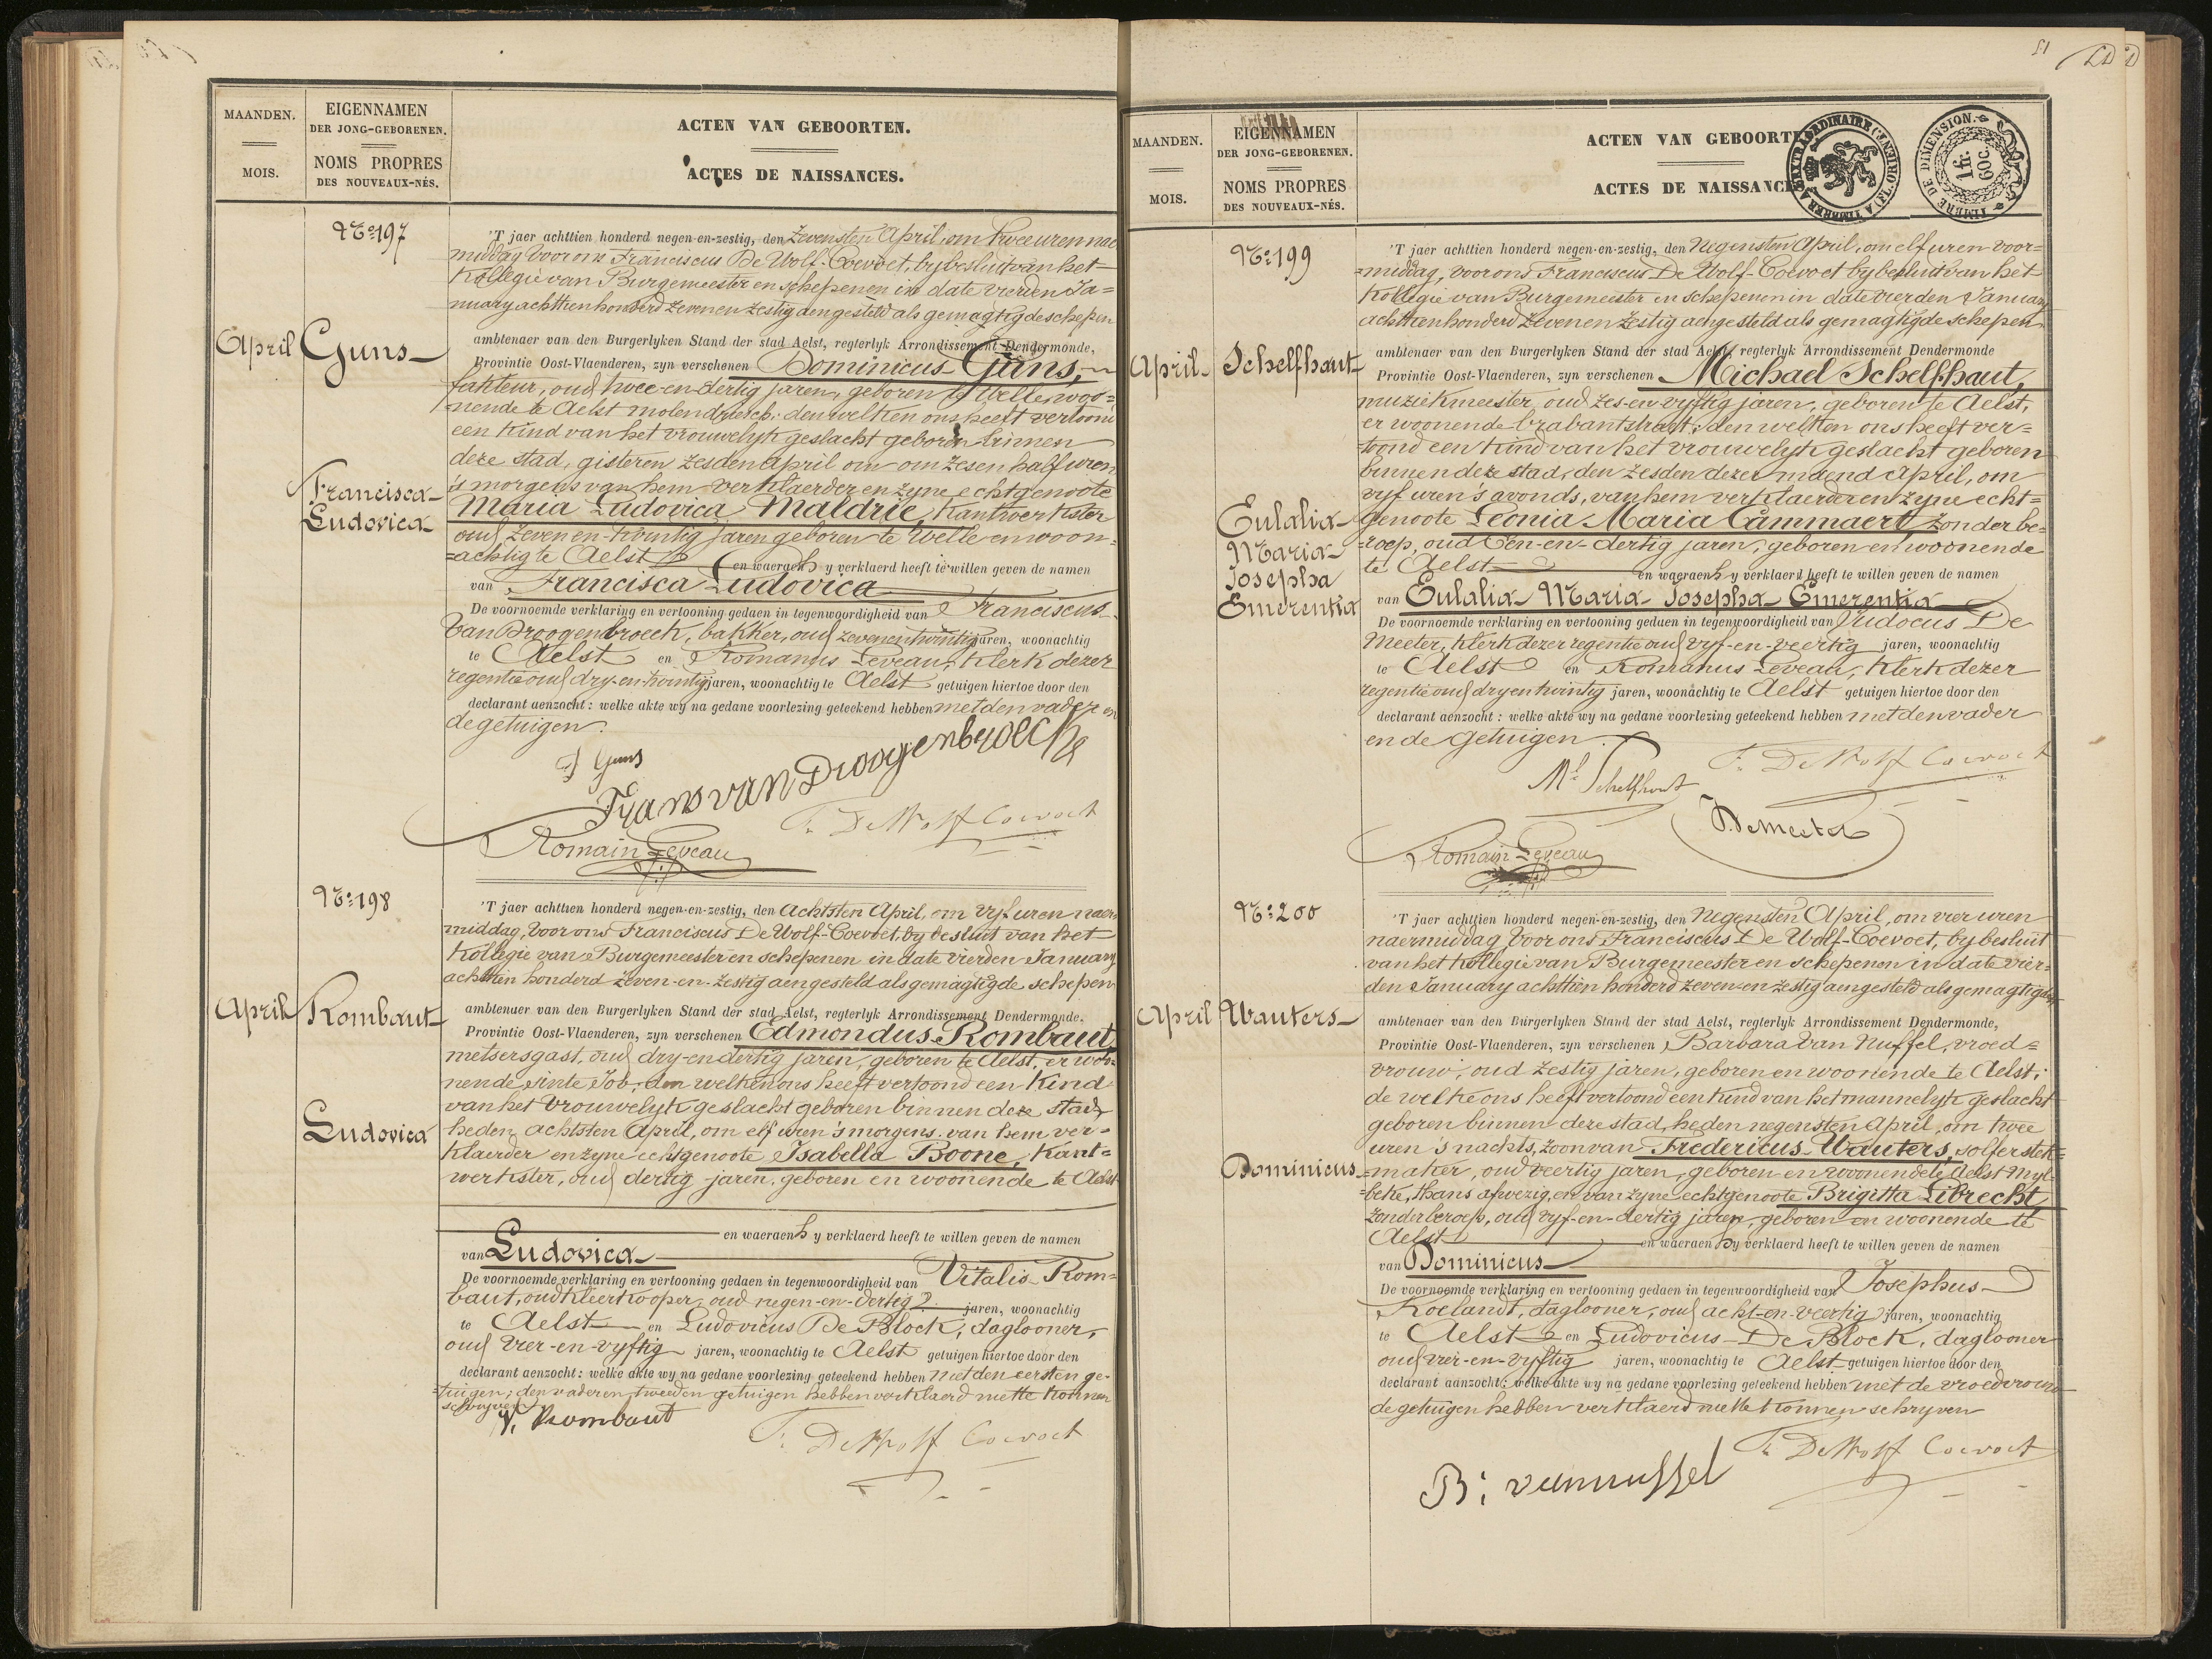 MAANDEN.
MOIS.
EIGENNAMEN
DER JONG-GEBORENEN.
NOMS PROPRES
DES NOUVEAUX-NÉS.
ACTEN VAN GEBOORTEN.
ACTES DE NAISSANCES.
No 197
April
Guns
Francisca
Ludovica
'T jaer achttien honderd negen-en-zestig, den zevensten April, om twee uren nae
middag voor ons Franciscus De Wolf-Coevoet, by besluit van het
Kollegie van Burgemeester en schepenen in date vierden Ja=
nuary achttien honderd zeven en zestig aengesteld als gemagtigde schepen
ambtenaer van den Burgerlyken Stand der stad Aelst, regterlyk Arrondissement Dendermonde,
Provintie Oost-Vlaenderen, zyn verschenen Dominicus Guns,
fakteur, oud twee-en-dertig jaren, geboren te Welle, woo=
nende te Aelst molendriesch; den welken ons heeft vertoond
een kind van het vrouwelyk geslacht geboren binnen
deze stad, gisteren zesden April om om zes en half uren
's morgens van hem verklaerder en zyne echtgenoote
Maria Ludovica Maldrie, kantwerkster
oud zeven en-twintig jaren geboren te Welle en woon=
=achtig te Aelst en waeraen hy verklaerd heeft te willen geven de namen
van Francisca Ludovica
De voornoemde verklaring en vertooning gedaen in tegenwoordigheid van Franciscus
Van Droogenbroeck, bakker, oud zevenentwintig jaren, woonachtig
te Aelst en Romanus Leveau, klerk dezer
regentie oud dry-en-twintig jaren, woonachtig te Aelst getuigen hiertoe door den
declarant aenzocht: welke akte wy na gedane voorlezing geteekend hebben met den vader en
de getuigen.
D Guns
Frans van Droogenbroeck
F. De Wolf Coevoet
Romain Leveau
No 198
April
Rombaut
Ludovica
'T jaer achttien honderd negen-en-zestig, den achtsten April, om vyf uren naer
middag, voor ons Franciscus De Wolf-Coevoet, by besluit van het
Kollegie van Burgemeester en schepenen in date vierden January
achttien honderd zeven-en-zestig aengesteld als gemagtigde schepen
ambtenaer van den Burgerlyken Stand der stad Aelst, regterlyk Arrondissement Dendermonde.
Provintie Oost-Vlaenderen, zyn verschenen Edmondus Rombaut
metsersgast, oud dry-en dertig jaren, geboren te Aelst, er woo=
nende sinte Job; den welken ons heeft vertoond een kind
van het vrouwelyk geslacht geboren binnen deze stad,
heden achtsten April, om elf uren 's morgens van hem ver=
klaerder en zyne echtgenoote Isabella Boone, kant=
werkster, oud dertig jaren, geboren en woonende te Aelst
en waeraen hy verklaerd heeft te willen geven de namen
van Ludovica
De voornoemde verklaring en vertooning gedaen in tegenwoordigheid van Vitalis Rom=
baut, oudkleerkooper, oud negen-en-dertig jaren, woonachtig
te Aelst en Ludovicus De Block, daglooner,
oud vier-en-vyftig jaren, woonachtig te Aelst getuigen hiertoe door den
declarant aenzocht: welke akte wy na gedane voorlezing geteekend hebben met den eersten ge-
=tuigen; den vader en tweeden getuigen hebben verklaerd niet te konnen
schryven
V. Rombaut
F. De Wolf Coevoet
51
MAANDEN.
MOIS.
EIGENNAMEN
DER JONG-GEBORENEN.
NOMS PROPRES
DES NOUVEAUX-NÉS.
ACTEN VAN GEBOORT
ACTES DE NAISSANC
TIMBRE DE DIMENSION
1 fr.
60 c.
No 199
April
Schelfhaut
Eulalia
Maria
Josepha
Emerentia
'T jaer achttien honderd negen-en-zestig, den negensten April, om elf uren voor=
=middag, voor ons Franciscus De Wolf-Coevoet by besluit van het
Kollegie van Burgemeester en schepenen in date vierden January
achttien honderd zeven en zestig aengesteld als gemagtigde schepen
ambtenaer van den Burgerlyken Stand der stad Aelst, regterlyk Arrondissement Dendermonde
Provintie Oost-Vlaenderen, zyn verschenen Michael Schelfhaut,
muziekmeester, oud zes-en-vyftig jaren, geboren te Aelst,
er woonende brabantstraat; den welken ons heeft ver=
=toond een kind van het vrouwelyk geslacht geboren
binnen deze stad, den zesden dezer maend April, om
vyf uren 's avonds, van hem verklaerder en zyne echt=
genoote Leonia Maria Cammaert, zonder be=
=roep, oud een-en-dertig jaren, geboren en woonende
te Aelst en waeraen hy verklaerd heeft te willen geven de namen
van Eulalia Maria Josepha Emerentia
De voornoemde verklaring en vertooning gedaen in tegenwoordigheid van Judocus De
Meeter, klerk dezer regentie oud vyf-en-veertig jaren, woonachtig
te Aelst en Romanus Leveau, klerk dezer
regentie oud dry en twintig jaren, woonachtig te Aelst getuigen hiertoe door den
declarant aenzocht: welke akte wy na gedane voorlezing geteekend hebben met den vader
en de getuigen
Ml Schelfhout
F. De Wolf Coevoet
DeMeeter
Romain Leveau
No 200
April
Wauters
Dominicus
'T jaer achttien honderd negen-en-zestig, den negensten April, om vier uren
naermiddag voor ons Franciscus De Wolf-Coevoet, by besluit
van het Kollegie van Burgemeester en schepenen in date vier=
den January achttien honderd zeven-en zestig aengesteld als gemagtigde
ambtenaer van den Burgerlyken Stand der stad Aelst, regterlyk Arrondissement Dendermonde,
Provintie Oost-Vlaenderen, zyn verschenen Barbara Van Nuffel, vroed=
vrouw, oud zestig jaren, geboren en woonende te Aelst;
de welke ons heeft vertoond een kind van het mannelyk geslacht
geboren binnen deze stad, heden negensten April, om twee
uren 's nachts, zoon van Fredericus Wauters, solferstek=
=maker, oud veertig jaren, geboren en woonende te Aelst Myl=
=beke, thans afwezig, en van zyne echtgenoote Brigitta Librecht
zonder beroep, oud vyf-en-dertig jaren, geboren en woonende te
Aelst en waeraen hy verklaerd heeft te willen geven de namen
van Dominicus
De voornoemde verklaring en vertooning gedaen in tegenwoordigheid van Josephus
Roelandt, daglooner, oud acht-en-veertig jaren, woonachtig
te Aelst en Ludovicus De Block, daglooner
oud vier-en-vyftig jaren, woonachtig te Aelst getuigen hiertoe door den
declarant aanzocht: welke akte wy na gedane voorlezing geteekend hebben met de vroedvrouw
de getuigen hebben verklaerd niet te konnen schryven
F. De Wolf Coevoet
B: vannuffel